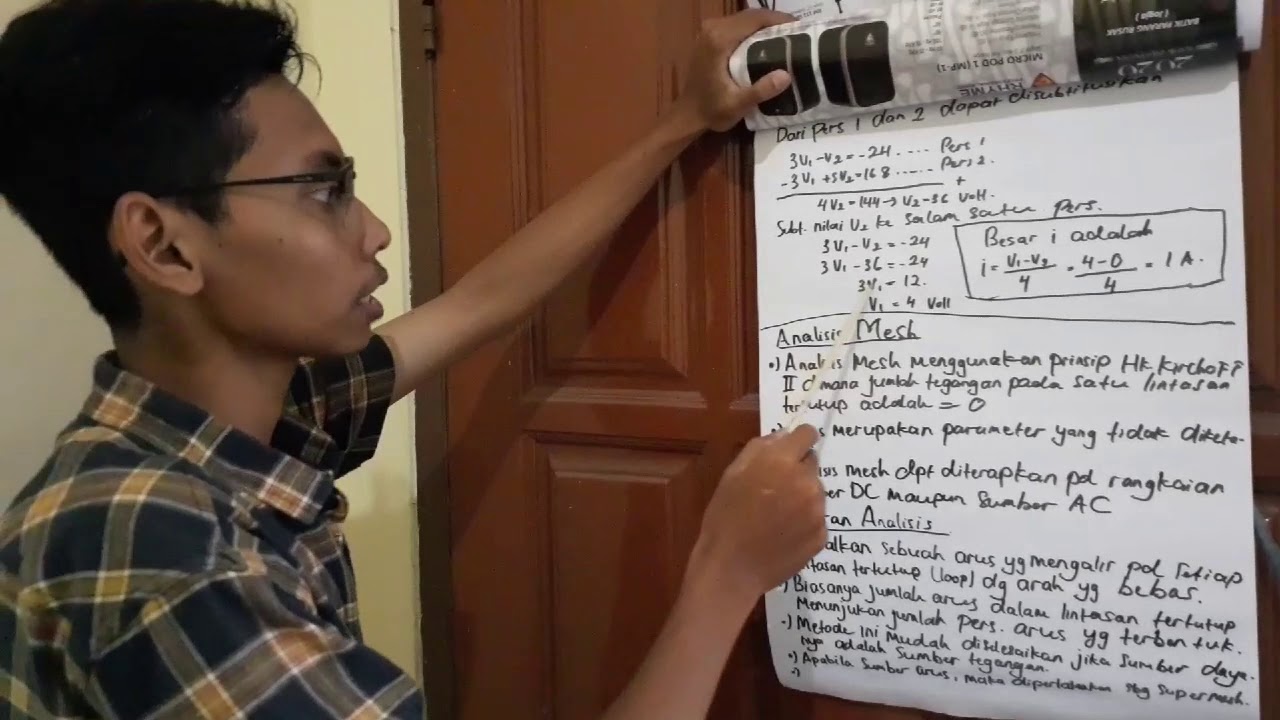 BATIK PARANG RUSAK
( Jogja )
MICRO POD 1 (MP-1)
RHYME
Dari Pers 1 dan 2 dapat disubtitusikan
3V₁-V₂ = -24 ..... Pers 1
-3V₁ +5V₂=168 ...... Pers 2.
+
4V₂ = 144 → V₂ = 36 Volt.
Subt. nilai V₂ ke salah satu pers.
3V₁ - V₂ = -24
3V₁ - 36 = -24
3V₁ = 12.
V₁ = 4 Volt
Besar i adalah
i = V₁-V₂ / 4 = 4-0 / 4 = 1 A.
Analisis Mesh
•) Analisis Mesh menggunakan prinsip Hk. Kirchoff
II dimana jumlah tegangan pada satu lintasan
tertutup adalah = 0
merupakan parameter yang tidak diketa-
mesh dpt diterapkan pd rangkaian
DC maupun Sumber AC
Analisis
sebuah arus yg mengalir pd setiap
tertutup (loop) dg arah yg bebas.
•) Biasanya jumlah arus dalam lintasan tertutup
Menunjukan jumlah pers. arus yg terbentuk.
•) Metode ini mudah diselesaikan jika sumber daya-
nya adalah sumber tegangan.
•) Apabila sumber arus, maka diperlakukan sbg supermesh.
•)